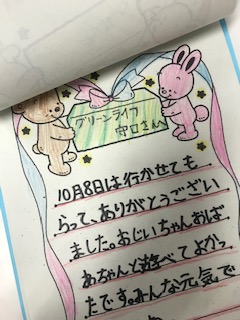 グリーンライフ
守口さんへ
10月8日は行かせても
らって、ありがとうござい
ました。おじいちゃんおば
あちゃんと遊べてよかっ
たです。みんな元気で